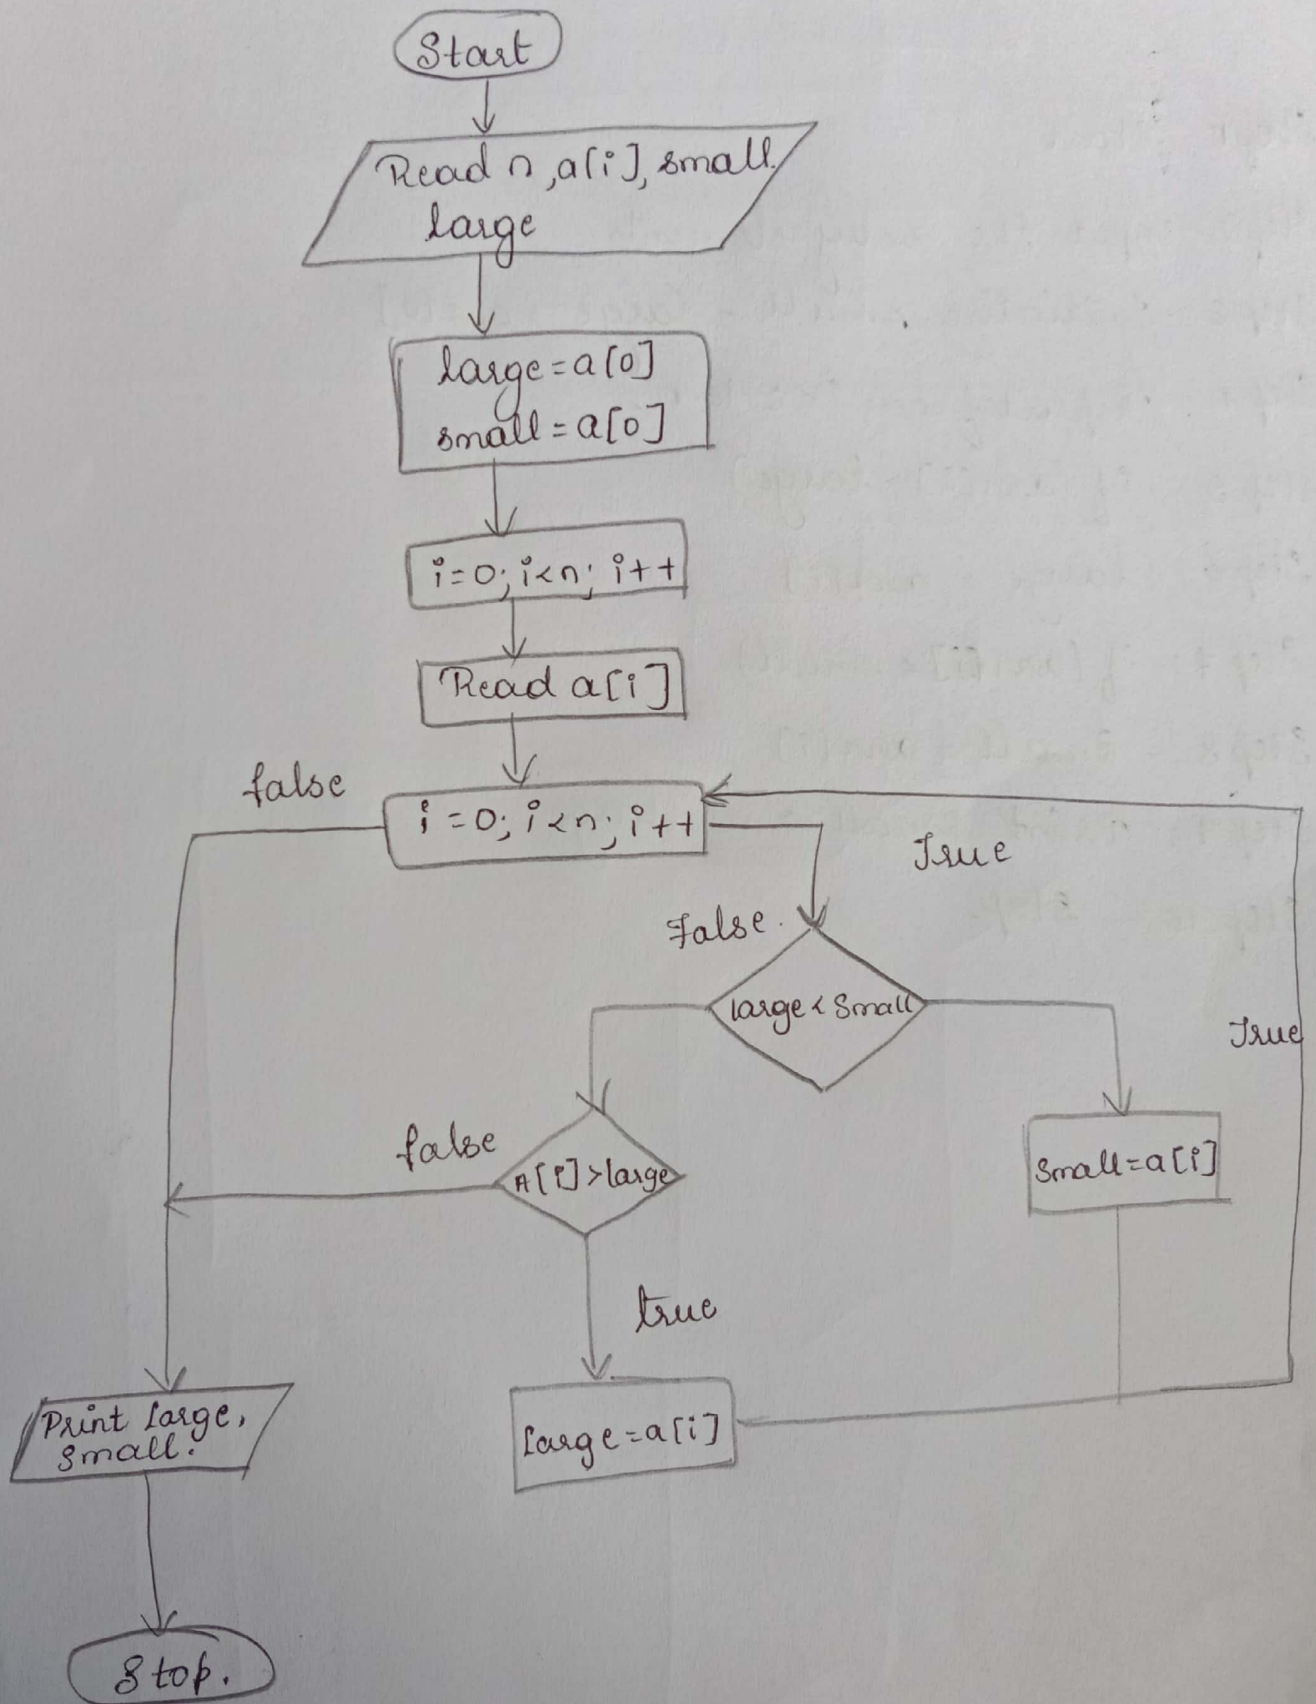 Start
Read n, a[i], small
large
large = a[0]
small = a[0]
i=0; i<n; i++
Read a[i]
false
i=0; i<n; i++
True
False
large < small
True
false
A[i] > large
small = a[i]
true
Print large,
small.
large = a[i]
Stop.